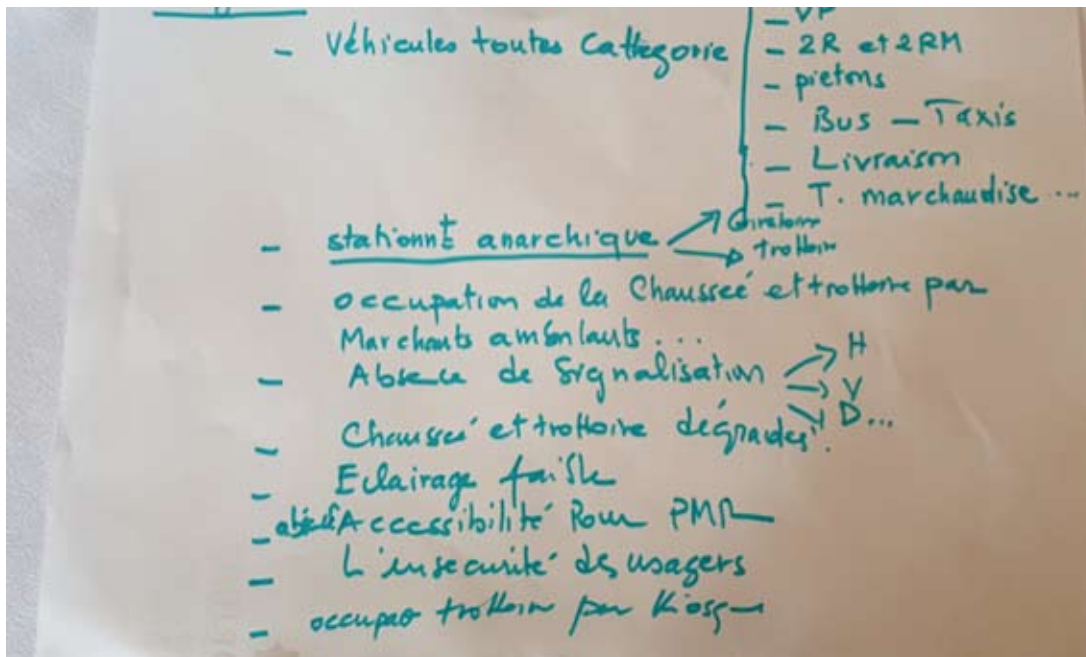 - VP
- Véhicules toutes Cattegorie
- 2R et 2RM
- pietons
- Bus - Taxis
- Livraison
- T. marchandise ...
- stationnt anarchique
Giratoire
trottoir
- occupation de la Chausseé et trottoire par
Marchants ambulants ...
- Absence de Signalisation
H
V
D...
- Chausseé et trottoire dégradés
- Eclairage faible
- Accessibilité Pour PMR
- L'insecurité des usagers
- occupat° trottoir par Kiosque